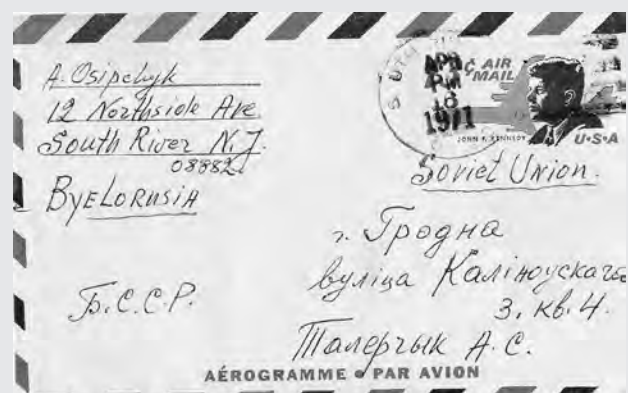 A. Osipchyk
12 Northside Ave.
South River N.J.
08882.
ByELORUSIA
Б.С.С.Р.
APR
PM
1971
¢ AIR
MAIL
JOHN F. KENNEDY
U·S·A
Soviet Union.
г. Гродна
вуліца Каліноускага
3. кв. 4.
Талерчык А. С.
AÉROGRAMME • PAR AVION